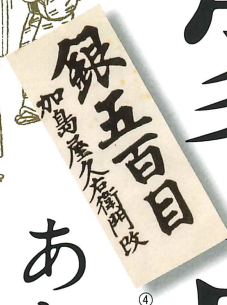 銀五百目
加島屋久右衛門改
あ
④